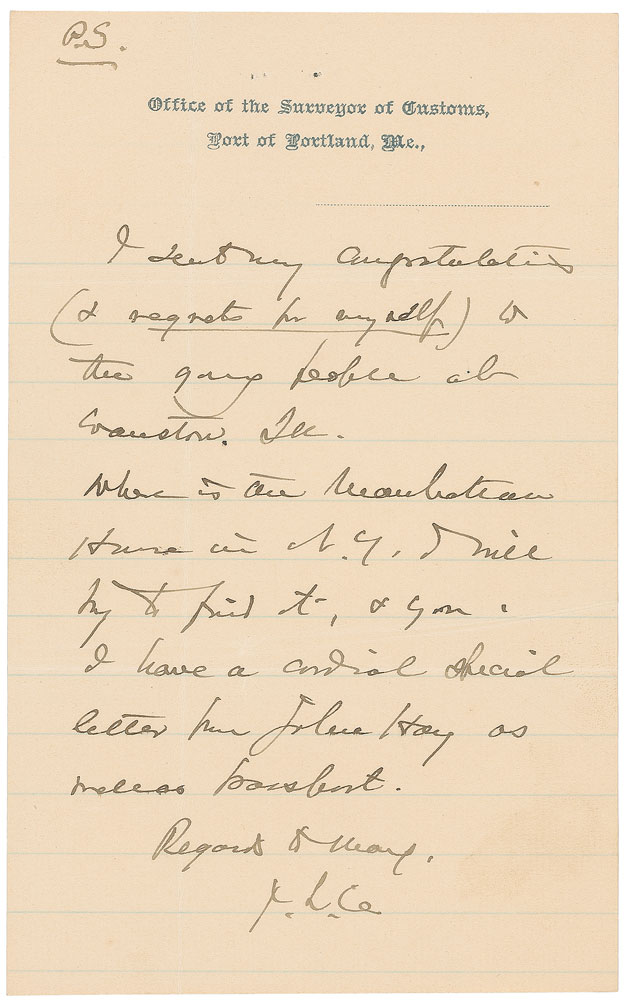 P.S.
Office of the Surveyor of Customs,
Port of Portland, Me.,
I sent my congratulations
(& regrets for myself) to
the young people at
Evanston. Ill.
Where is the Manhattan
House in N.Y. I will
try to find it, & you.
I have a cordial special
letter from John Hay as
well as passport.
Regards to Mary.
J. L. C.